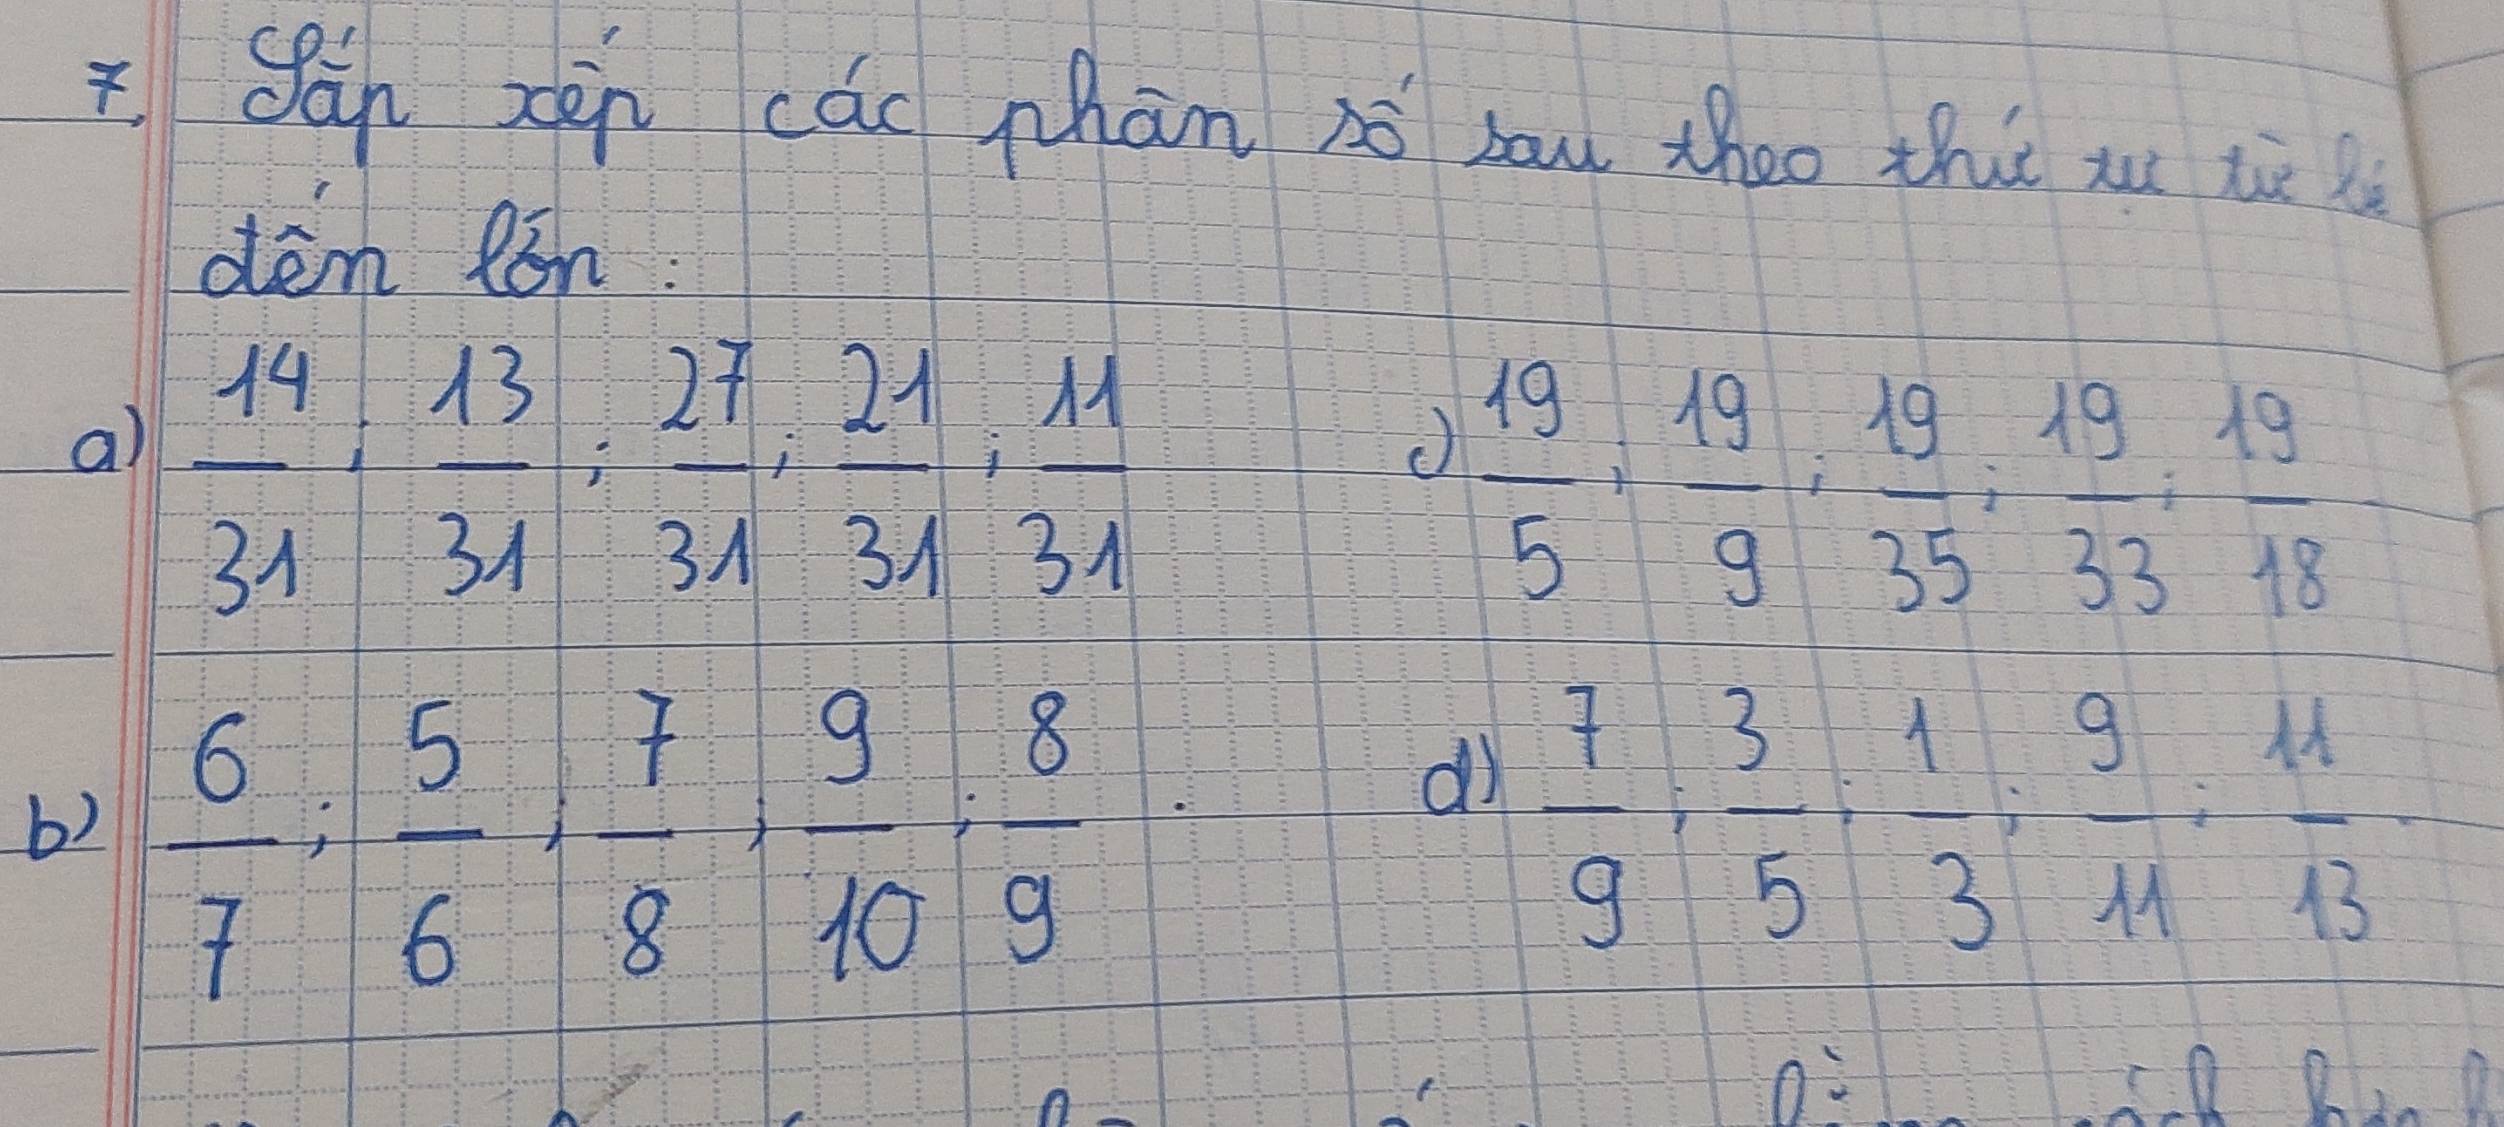 7. Sắp xếp các phân số sau theo thứ tự từ bé
đến lớn :
a) 14/31 ; 13/31 ; 27/31 ; 21/31 ; 11/31
c) 19/5 ; 19/9 ; 19/35 ; 19/33 ; 19/18
b) 6/7 ; 5/6 ; 7/8 ; 9/10 ; 8/9 .
d) 7/9 ; 3/5 ; 1/3 ; 9/11 ; 11/13